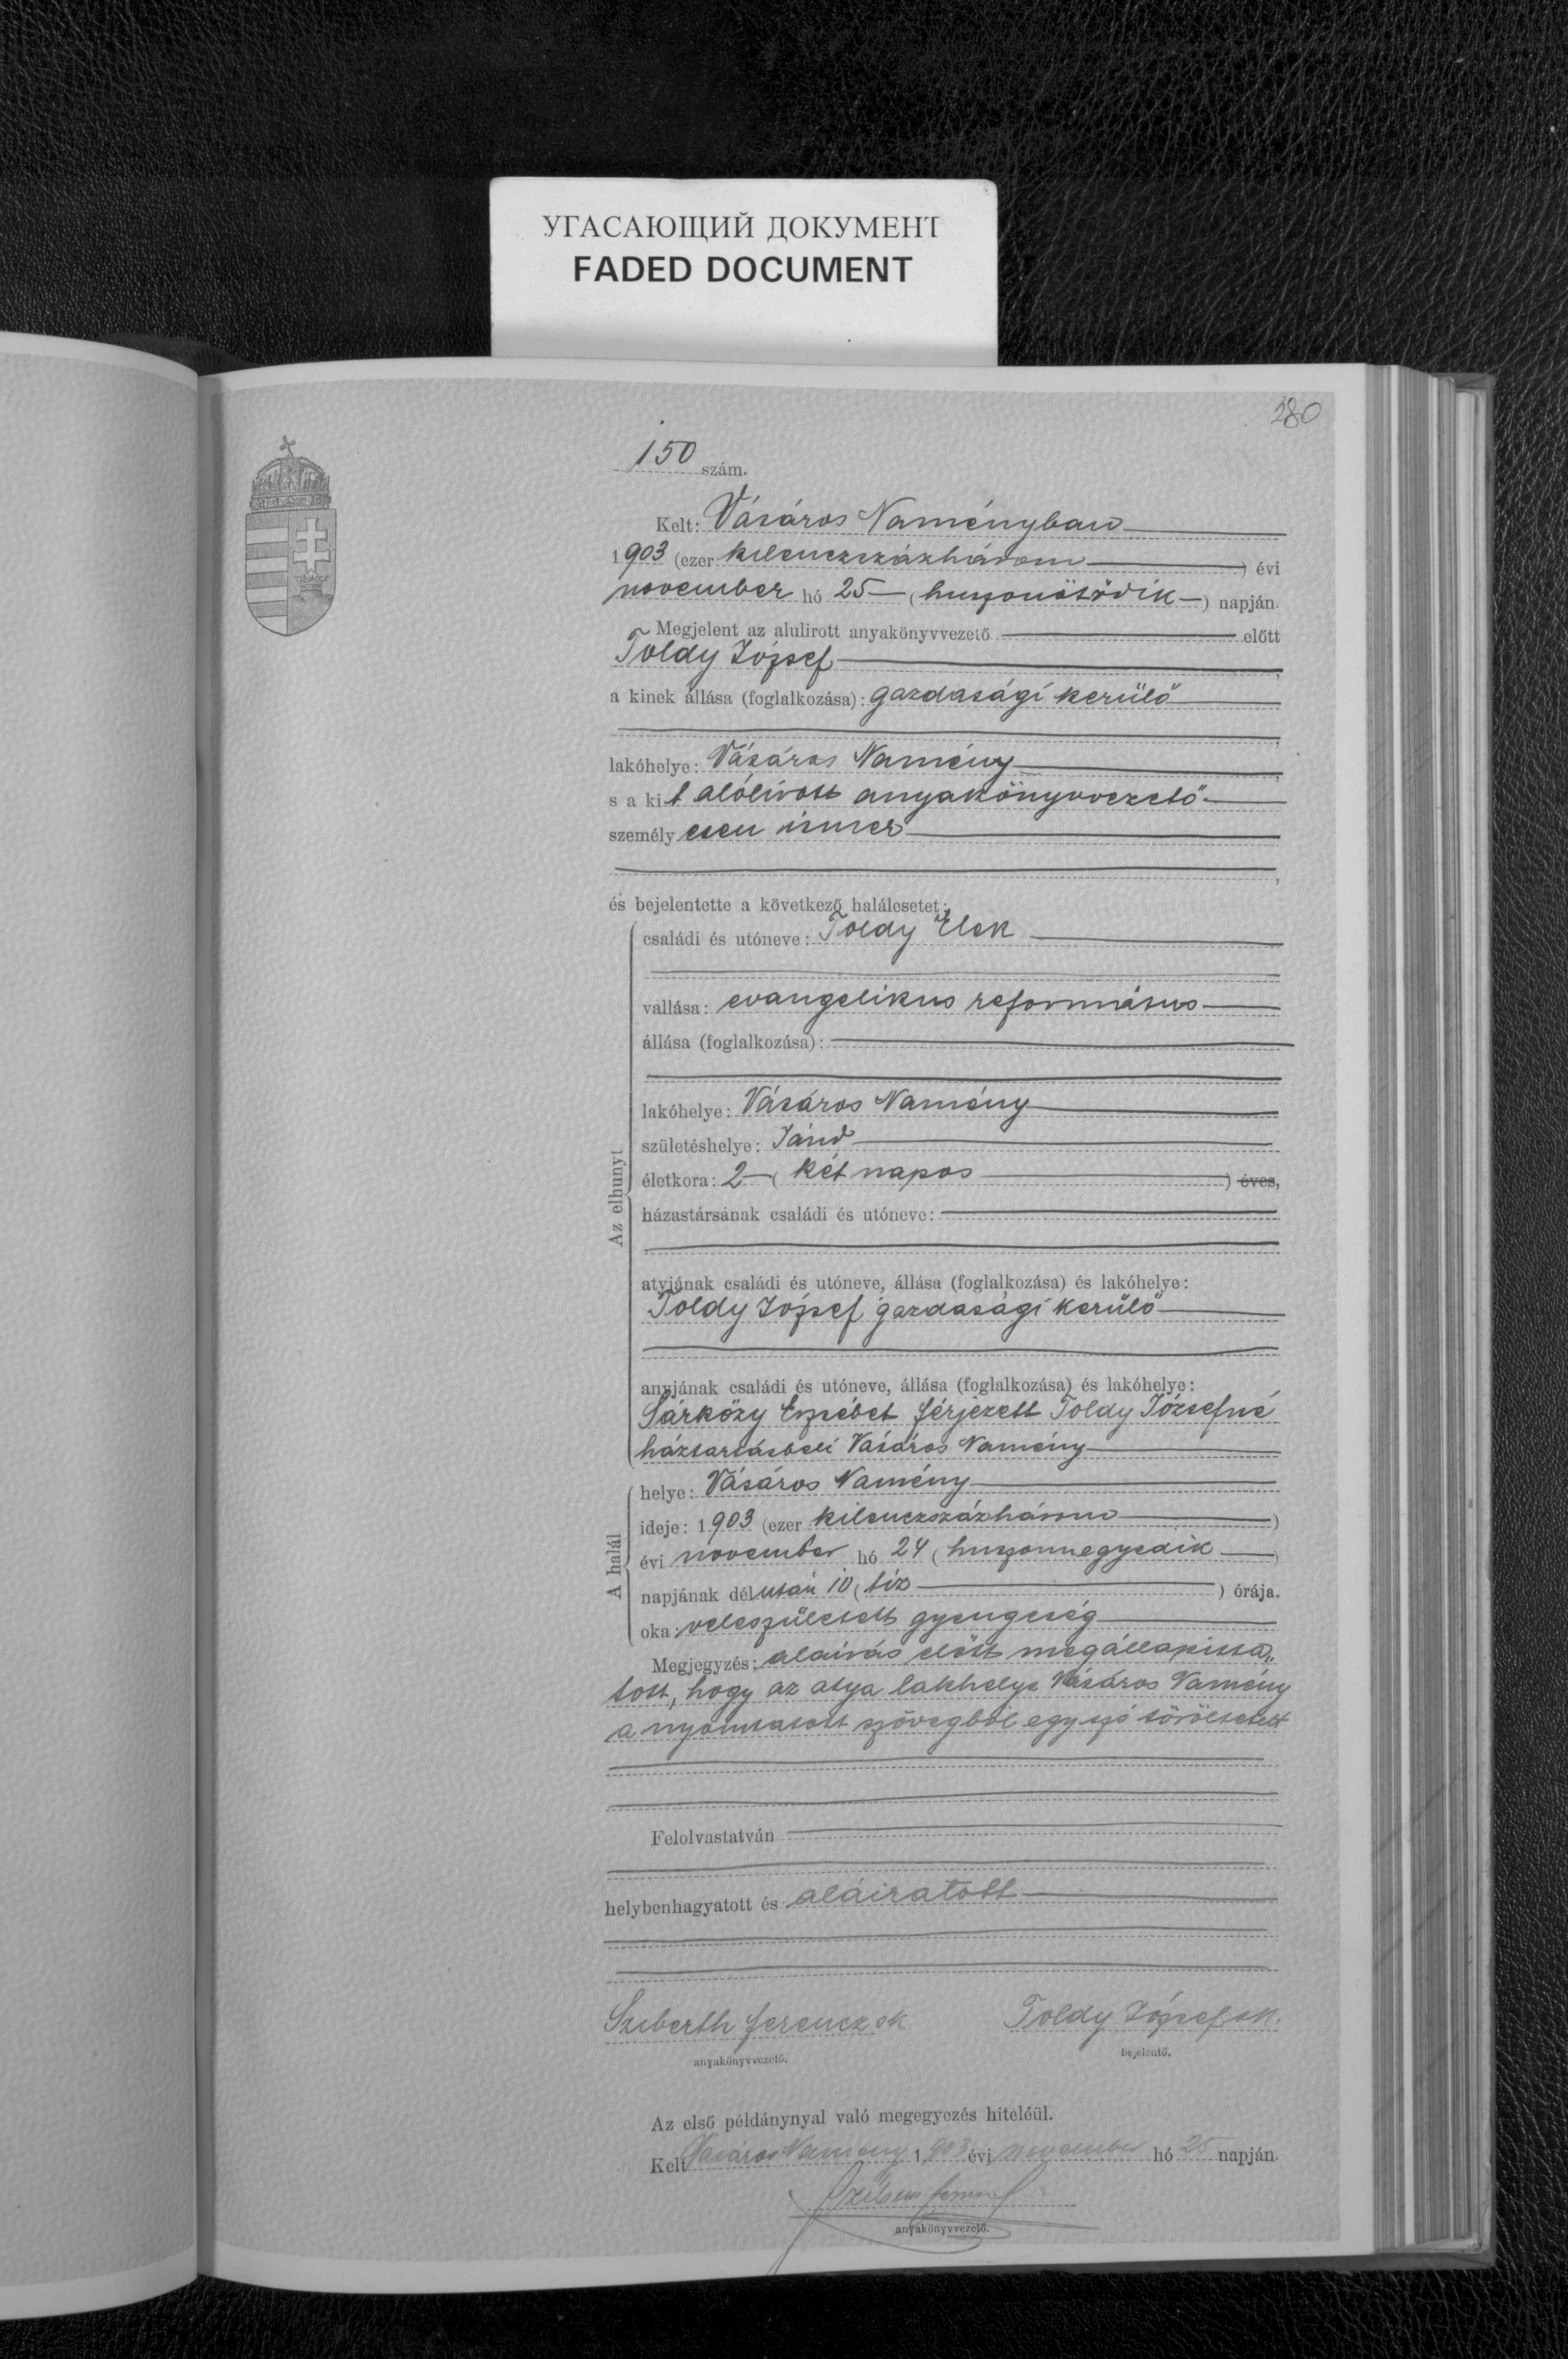 УГАСАЮЩИЙ ДОКУМЕНТ
FADED DOCUMENT
280
150 szám.
Kelt: Vásáros Naményban
1903 (ezer kilenczszázhárom) évi
november hó 25 (huszonötödik) napján.
Megjelent az alulirott anyakönyvvezető előtt
Toldy József,
a kinek állása (foglalkozása): gazdasági kerülő
lakóhelye: Vásáros Namény,
s a kit alólirott anyakönyvvezető
személyesen ismer,
és bejelentette a következő halálesetet:
Az elhunyt
családi és utóneve: Toldy Elek
vallása: evangelikus református
állása (foglalkozása):
lakóhelye: Vásáros Namény
születéshelye: Jánd
életkora: 2 (két napos) éves,
házastársának családi és utóneve:
atyjának családi és utóneve, állása (foglalkozása) és lakóhelye:
Toldy József gazdasági kerülő
anyjának családi és utóneve, állása (foglalkozása) és lakóhelye:
Sárközy Erzsébet férjezett Toldy Józsefné
háztartásbeli Vásáros Namény
A halál
helye: Vásáros Namény
ideje: 1903 (ezer kilenczszázhárom)
évi november hó 24 (huszonnegyedik)
napjának délután 10 (tíz) órája.
oka: veleszületett gyengeség
Megjegyzés: aláirás előtt megállapitta„
tott, hogy az atya lakhelye Vásáros Namény
a nyomtatott szövegből egy szó töröltetett
Felolvastatván
helybenhagyatott és aláiratott
Sziberth Ferencz sk Toldy József sk.
anyakönyvvezető. bejelentő.
Az első példánynyal való megegyezés hiteléül.
Kelt Vásáros Namény 1903 évi november hó 25 napján.
anyakönyvvezető.